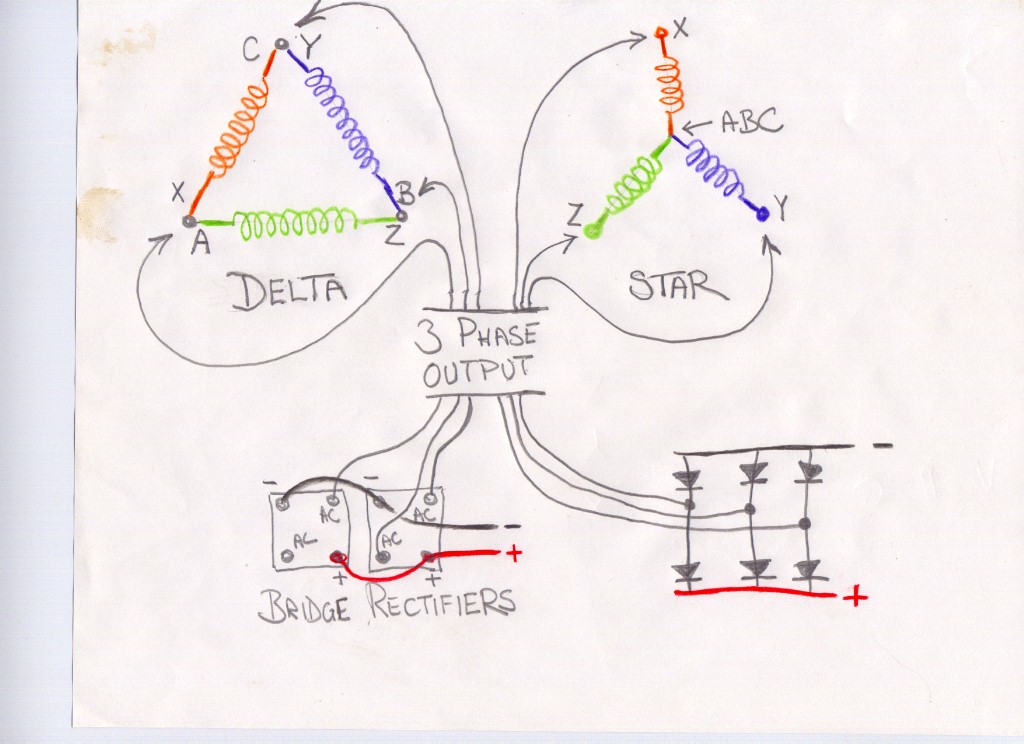 C Y
X
B
A
Z
DELTA
X
← ABC
Z
Y
STAR
3 PHASE
OUTPUT
- -
AC AC
AC AC
-
+
+ +
BRIDGE RECTIFIERS
-
+